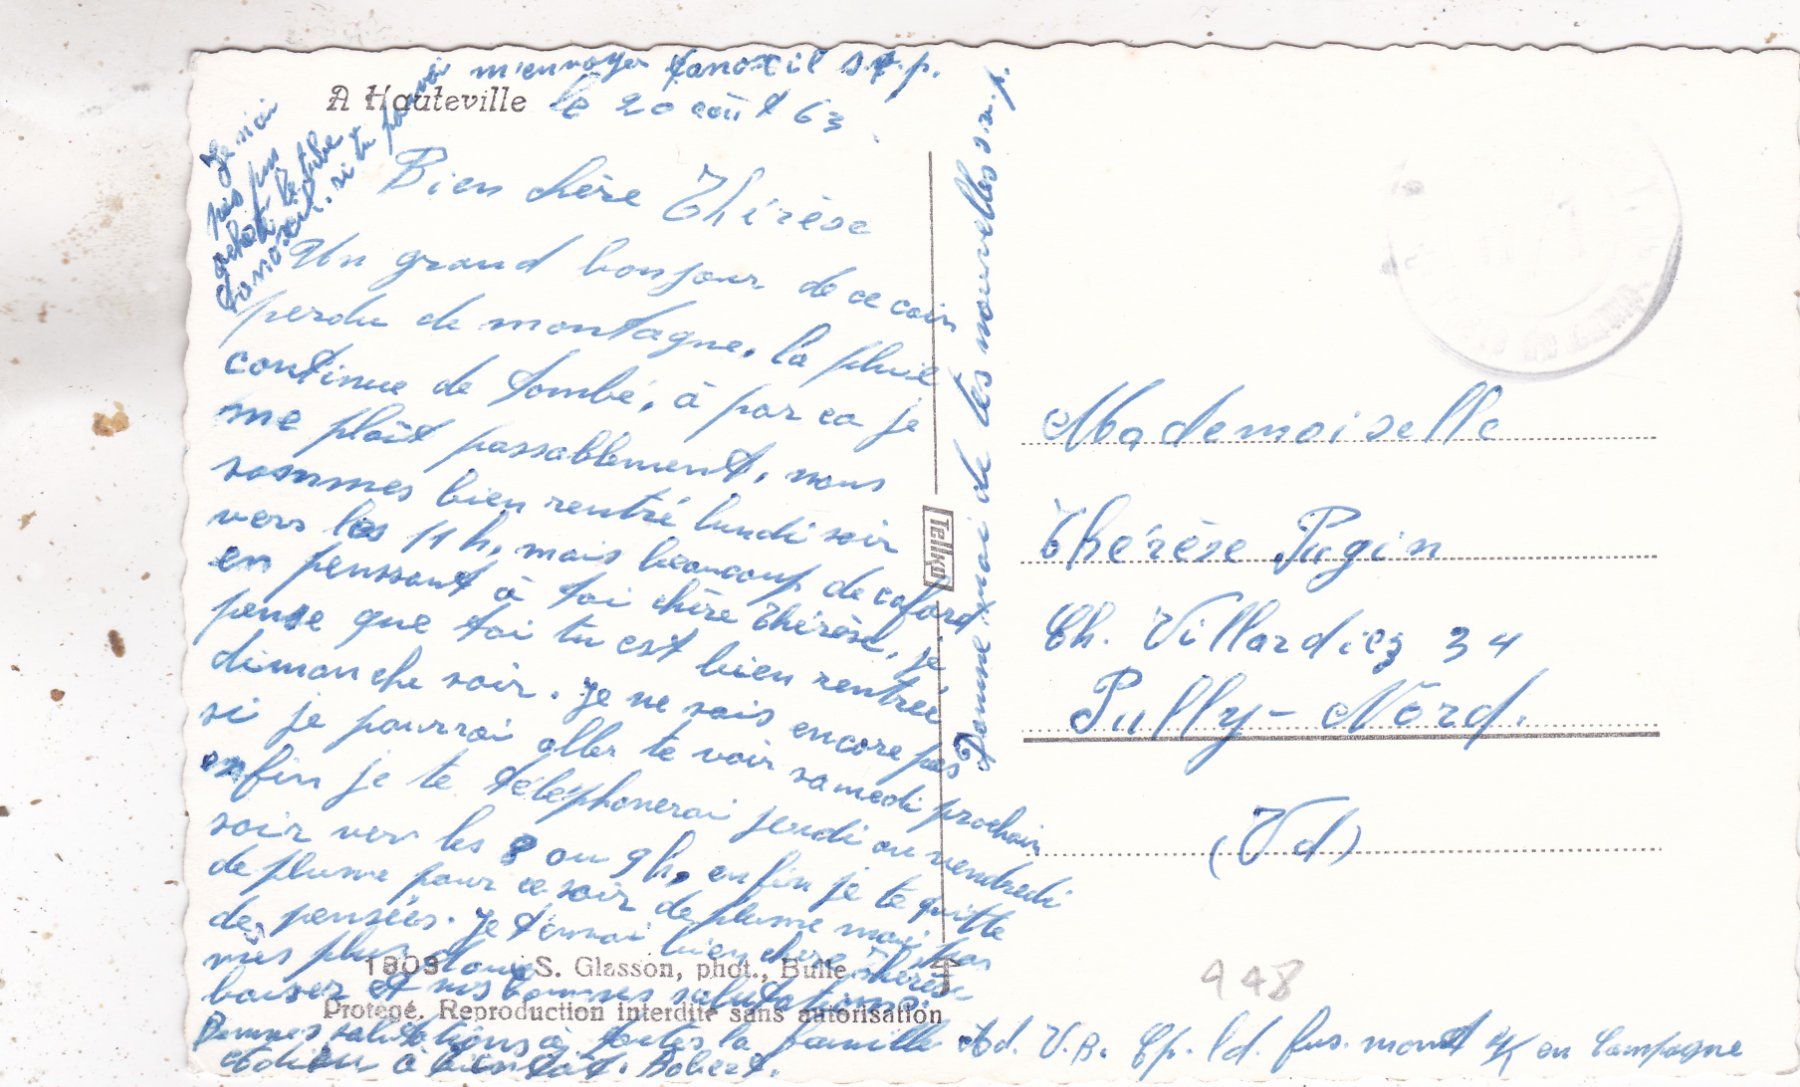 A Hauteville
le 20 août 63
Bien chère Thérèse
Un grand bonjour de ce coin
perdu de montagne, la pluie
continue de tombé, à par ca je
me plaît passablement, nous
sommes bien rentré lundi soir
vers les 11 h, mais beaucoup de cafard
en penssant à toi chère Thérèse, je
pense que toi tu est bien rentrée
dimanche soir. Je ne sais encore pas
si je pourrai aller te voir samedi prochain
enfin je te téléphonerai jeudi ou vendredi
soir vers les 8 ou 9h, enfin je te quitte
de plume pour ce soir de plume mais pas
de pensées. Je t'envoi bien chère Thérèse
mes plus doux
baiser et mes bonnes salutations
Bonnes salutations à toutes la famille
Adieu à bientôt. Robert.
Je n'ai
pas pu
acheté le tube
si tu pouvai m'envoyer s.t.p.
Donne moi de tes nouvelles s.t.p.
Telko
1809 S. Glasson, phot., Bulle
Protégé. Reproduction interdite sans autorisation
Mademoiselle
Thérèse Pugin
Ch. Villardiez 34
Pully-Nord.
(Vd)
448
Ad. V.B. Cp. ld. fus. mont en Campagne